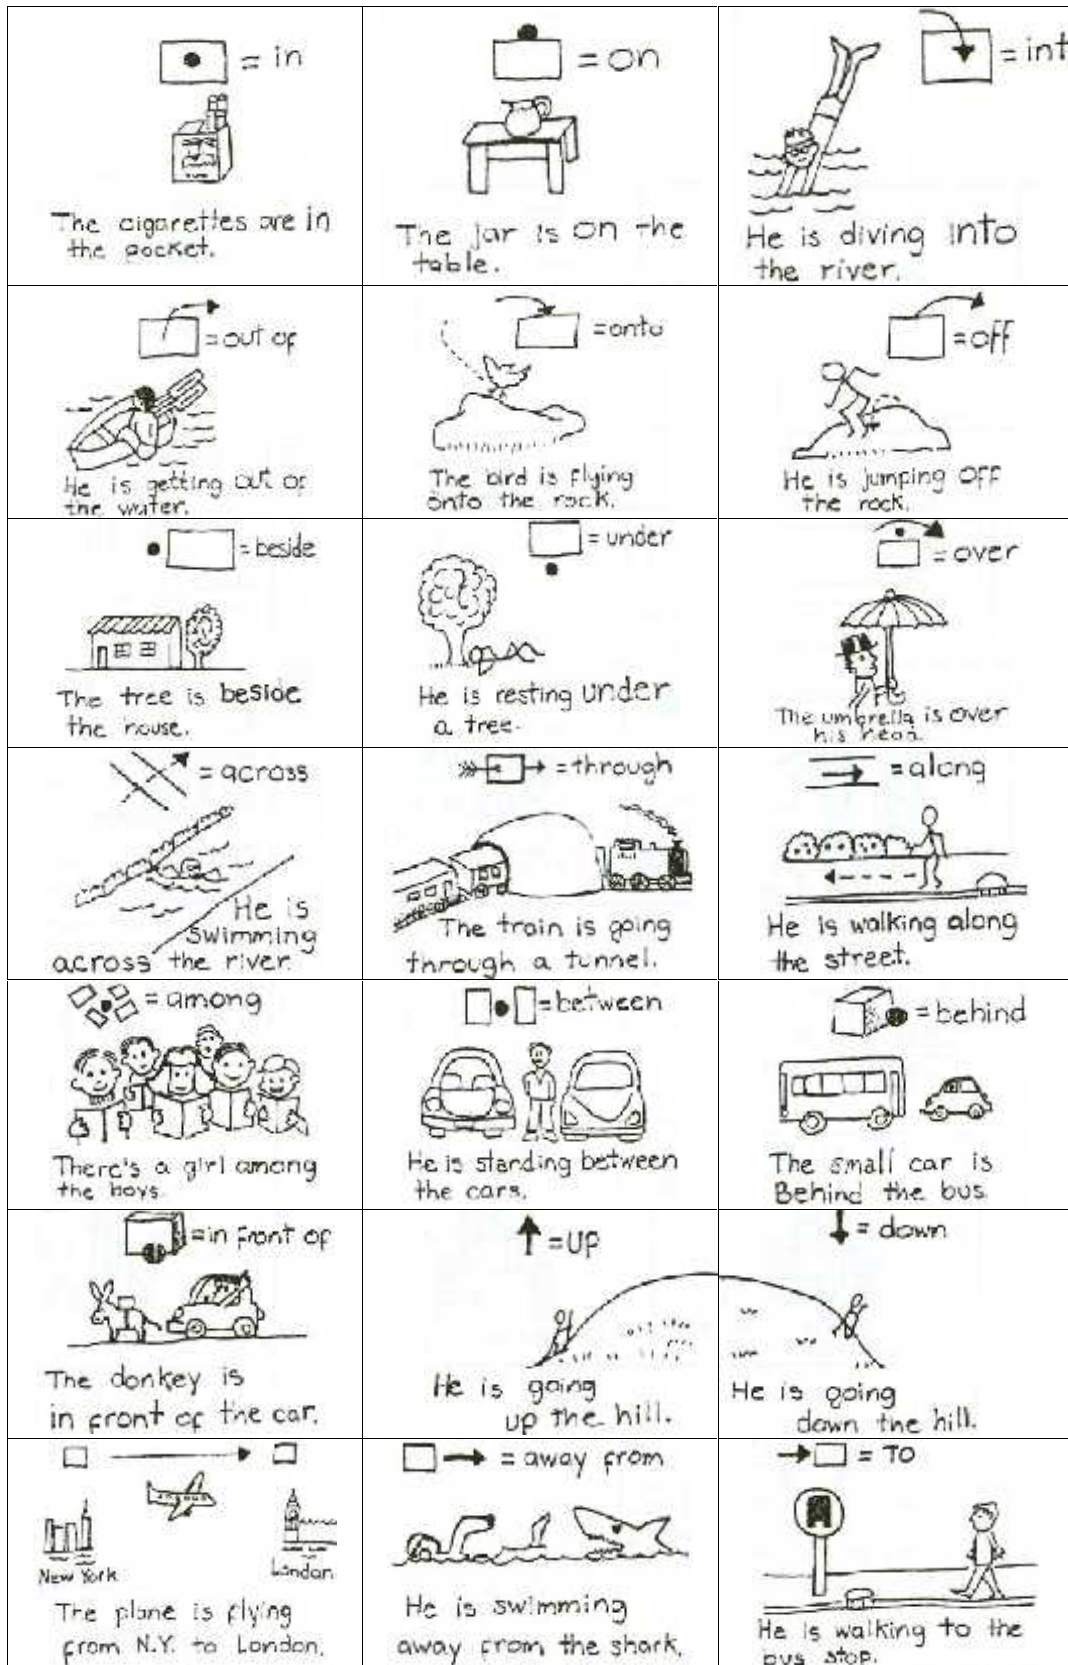 = in
The cigarettes are in
the pocket.
= on
The jar is on the
table.
= int
He is diving into
the river.
= out of
He is getting out of
the water.
= onto
The bird is flying
onto the rock.
= off
He is jumping off
the rock.
= beside
The tree is beside
the house.
= under
He is resting under
a tree.
= over
The umbrella is over
his head.
= across
He is
swimming
across the river.
= through
The train is going
through a tunnel.
= along
He is walking along
the street.
= among
There's a girl among
the boys.
= between
He is standing between
the cars.
= behind
The small car is
Behind the bus.
= in front of
The donkey is
in front of the car.
= UP
He is going
up the hill.
= down
He is going
down the hill.
New York
London
The plane is flying
from N.Y. to London.
= away from
He is swimming
away from the shark.
= TO
He is walking to the
bus stop.